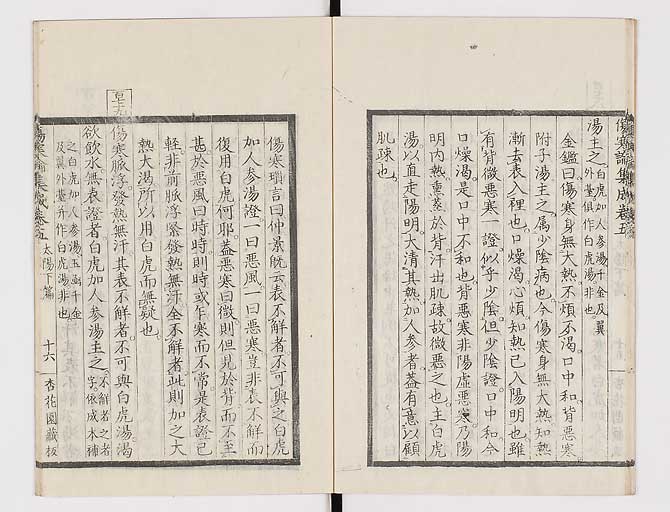 傷寒論集成卷五
湯主之。白虎加人參湯千金及翼
外臺俱作白虎湯非也
金鑑曰傷寒身無大熱不煩不渴口中和背惡寒
附子湯主之屬少陰病也今傷寒身無大熱知熱
漸去表入裡也口燥渴心煩知熱已入陽明也雖
有背微惡寒一證似乎少陰但少陰證口中和今
口燥渴是口中不和也背惡寒非陽虛惡寒乃陽
明内熱熏蒸於背汗出肌疎故微惡之也主白虎
湯以直走陽明大清其熱加人參者蓋有意以顧
肌疎也
傷寒瑣言曰仲景既云表不解者不可與之白虎
加人參湯證一曰惡風一曰惡寒豈非表不解而
復用白虎何耶蓋惡寒曰微則但見於背而不至
甚於惡風曰時時則時或乍寒而不常是表證已
輕非前脈浮緊發熱無汗全不解者此則加之大
熱大渴所以用白虎而無疑也
傷寒脈浮發熱無汗其表不解者不可與白虎湯渴
欲飲水無表證者白虎加人參湯主之。不解者之者
字。依成本補
之白虎加人參湯玉函千金
及翼外臺并作白虎湯非也
傷寒論集成卷五
太陽下篇
十六
杏花園藏板